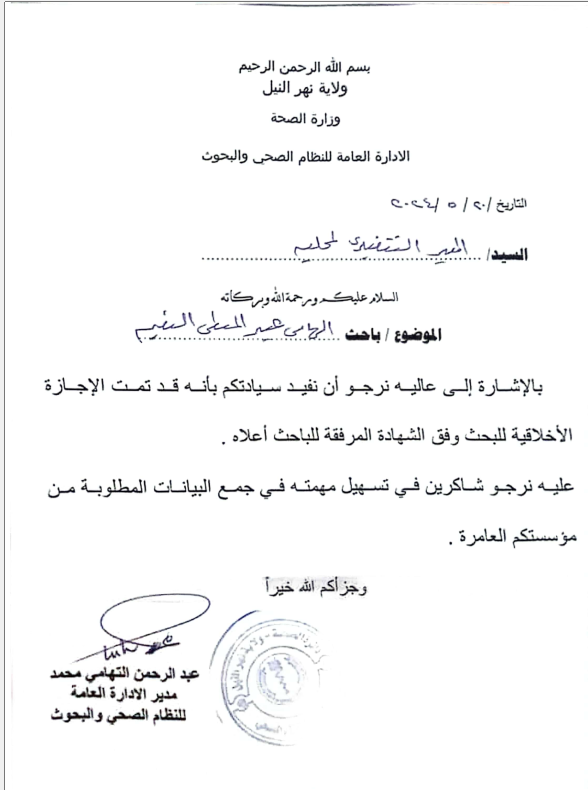 بسم الله الرحمن الرحيم
ولاية نهر النيل
وزارة الصحة
الادارة العامة للنظام الصحي والبحوث
التاريخ /٢٠ / ٥ /٢٠٢٤
السيد/ المدير التنفيذي لمحلية
السلام عليكم ورحمة الله وبركاته
الموضوع / باحث عبد المعطي
بالإشارة إلى عاليه نرجو أن نفيد سيادتكم بأنه قد تمت الإجازة
الأخلاقية للبحث وفق الشهادة المرفقة للباحث أعلاه .
عليه نرجو شاكرين في تسهيل مهمته في جمع البيانات المطلوبة من
مؤسستكم العامرة .
وجزأكم الله خيراً
عبد الرحمن التهامي محمد
مدير الادارة العامة
للنظام الصحي والبحوث
ولاية نهر النيل